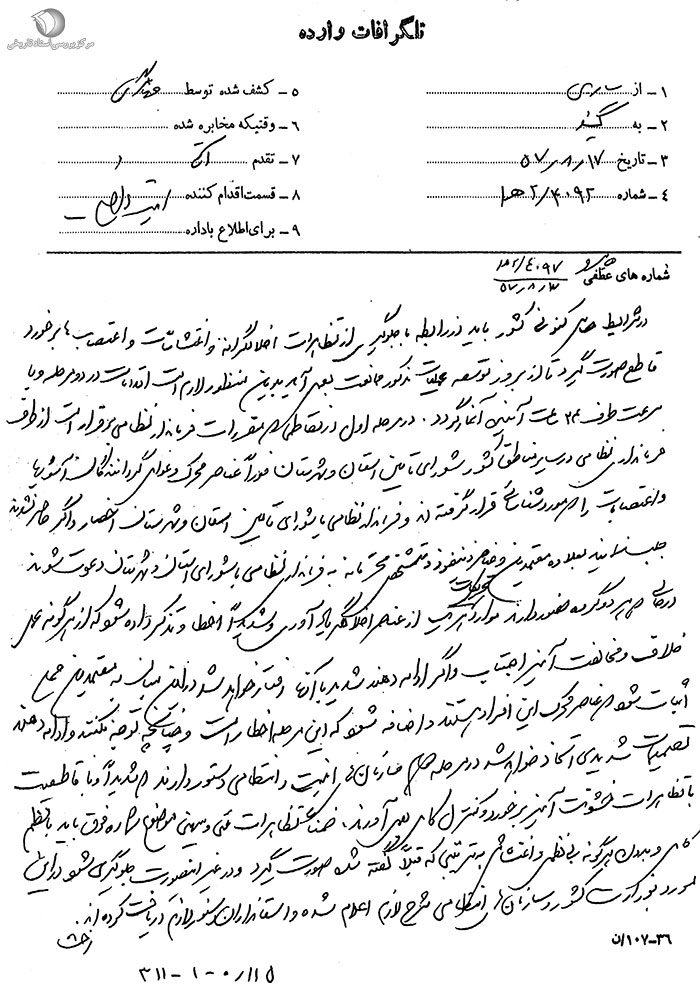 مرکز بررسی اسناد تاریخی
تلگرافات وارده
۱ - از ساری
۲ - به گیتی
۳ - تاریخ ۵۷٫۸٫۱۷
۴ - شماره ۴۰۹۲/۲ه‍ا
۵ - کشف شده توسط
۶ - وقتیکه مخابره شده
۷ - تقدم
۸ - قسمت اقدام کننده
۹ - برای اطلاع باداره
شماره های عطفی
در شرایط کنونی کشور باید در رابطه با جلوگیری از تظاهرات اخلالگرانه و اغتشاشات و اعتصاب ها برخورد
قاطع صورت گیرد تا از بروز و توسعه عملیات مذکور ممانعت بعمل آید بدین منظور لازم است اقدامات در دو مرحله و با
سرعت ظرف ۲۴ ساعت آینده آغاز گردد. در مرحله اول در نقاطی که مقررات فرمانداری نظامی برقرار است از طرف
فرمانداری نظامی در سایر مناطق کشور شورای تامین استان و شهرستان فوراً عناصر محرک و اغوا کنندگان آشوبها
و اعتصابات را که مورد شناسائی قرار گرفته اند و فرماندار نظامی یا شورای تامین استان و شهرستان احضار و اگر حاضر نشدند
جلب نمایند بعلاوه معتمدین و عناصر متنفذ محترمانه به فرمانداری نظامی یا شورای استان و شهرستان دعوت شوند
در حالی که هر دو گروه حضور دارند موارد از عناصر اخلالگر یادآوری و شدیداً اخطار و تذکر داده شود که از هرگونه عمل
خلاف و مخالفت آمیز اجتناب و اگر ادامه دهند شدید با آنها رفتار خواهد شد در این میان به معتمدین محل
اثبات شود که عناصر محرک این افراد هستند و اضافه شود که این مرحله اخطار است و چنانچه توجه نکنند و ادامه دهند
تصمیمات شدیدی اتخاذ خواهد شد در مرحله سازمان های امنیت و انتظامی دستور دارند که شدیداً و با قاطعیت
با تظاهرات خشونت آمیز برخورد و کنترل کامل بعمل آورند. ضمناً تظاهرات موضوع شماره فوق باید با نظم
کامل و بدون هرگونه بی نظمی و اغتشاش به ترتیبی که قبلاً گفته شده صورت گیرد و در غیر اینصورت جلوگیری شود در این
مورد بوزارت کشور و سازمان های انتظامی بشرح لازم اعلام شده و استانداران دستور لازم دریافت کرده اند.
۳۶-۱۰۷/ن
۳۱۱-۱-۰/۱۱۵